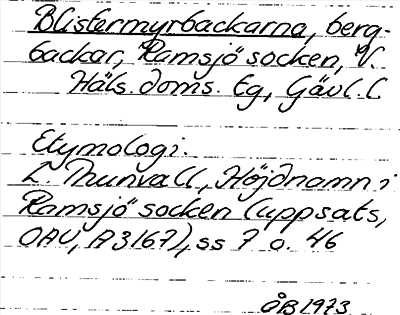 Blistermyrbackarna, berg-
backar, Ramsjö socken, V.
Häls. doms. tg, Gävl. l
Etymologi.
L. Thunvall, Höjdnamn i
Ramsjö socken (uppsats,
OAU, A3167), ss 7 o. 46
ÅB 1973